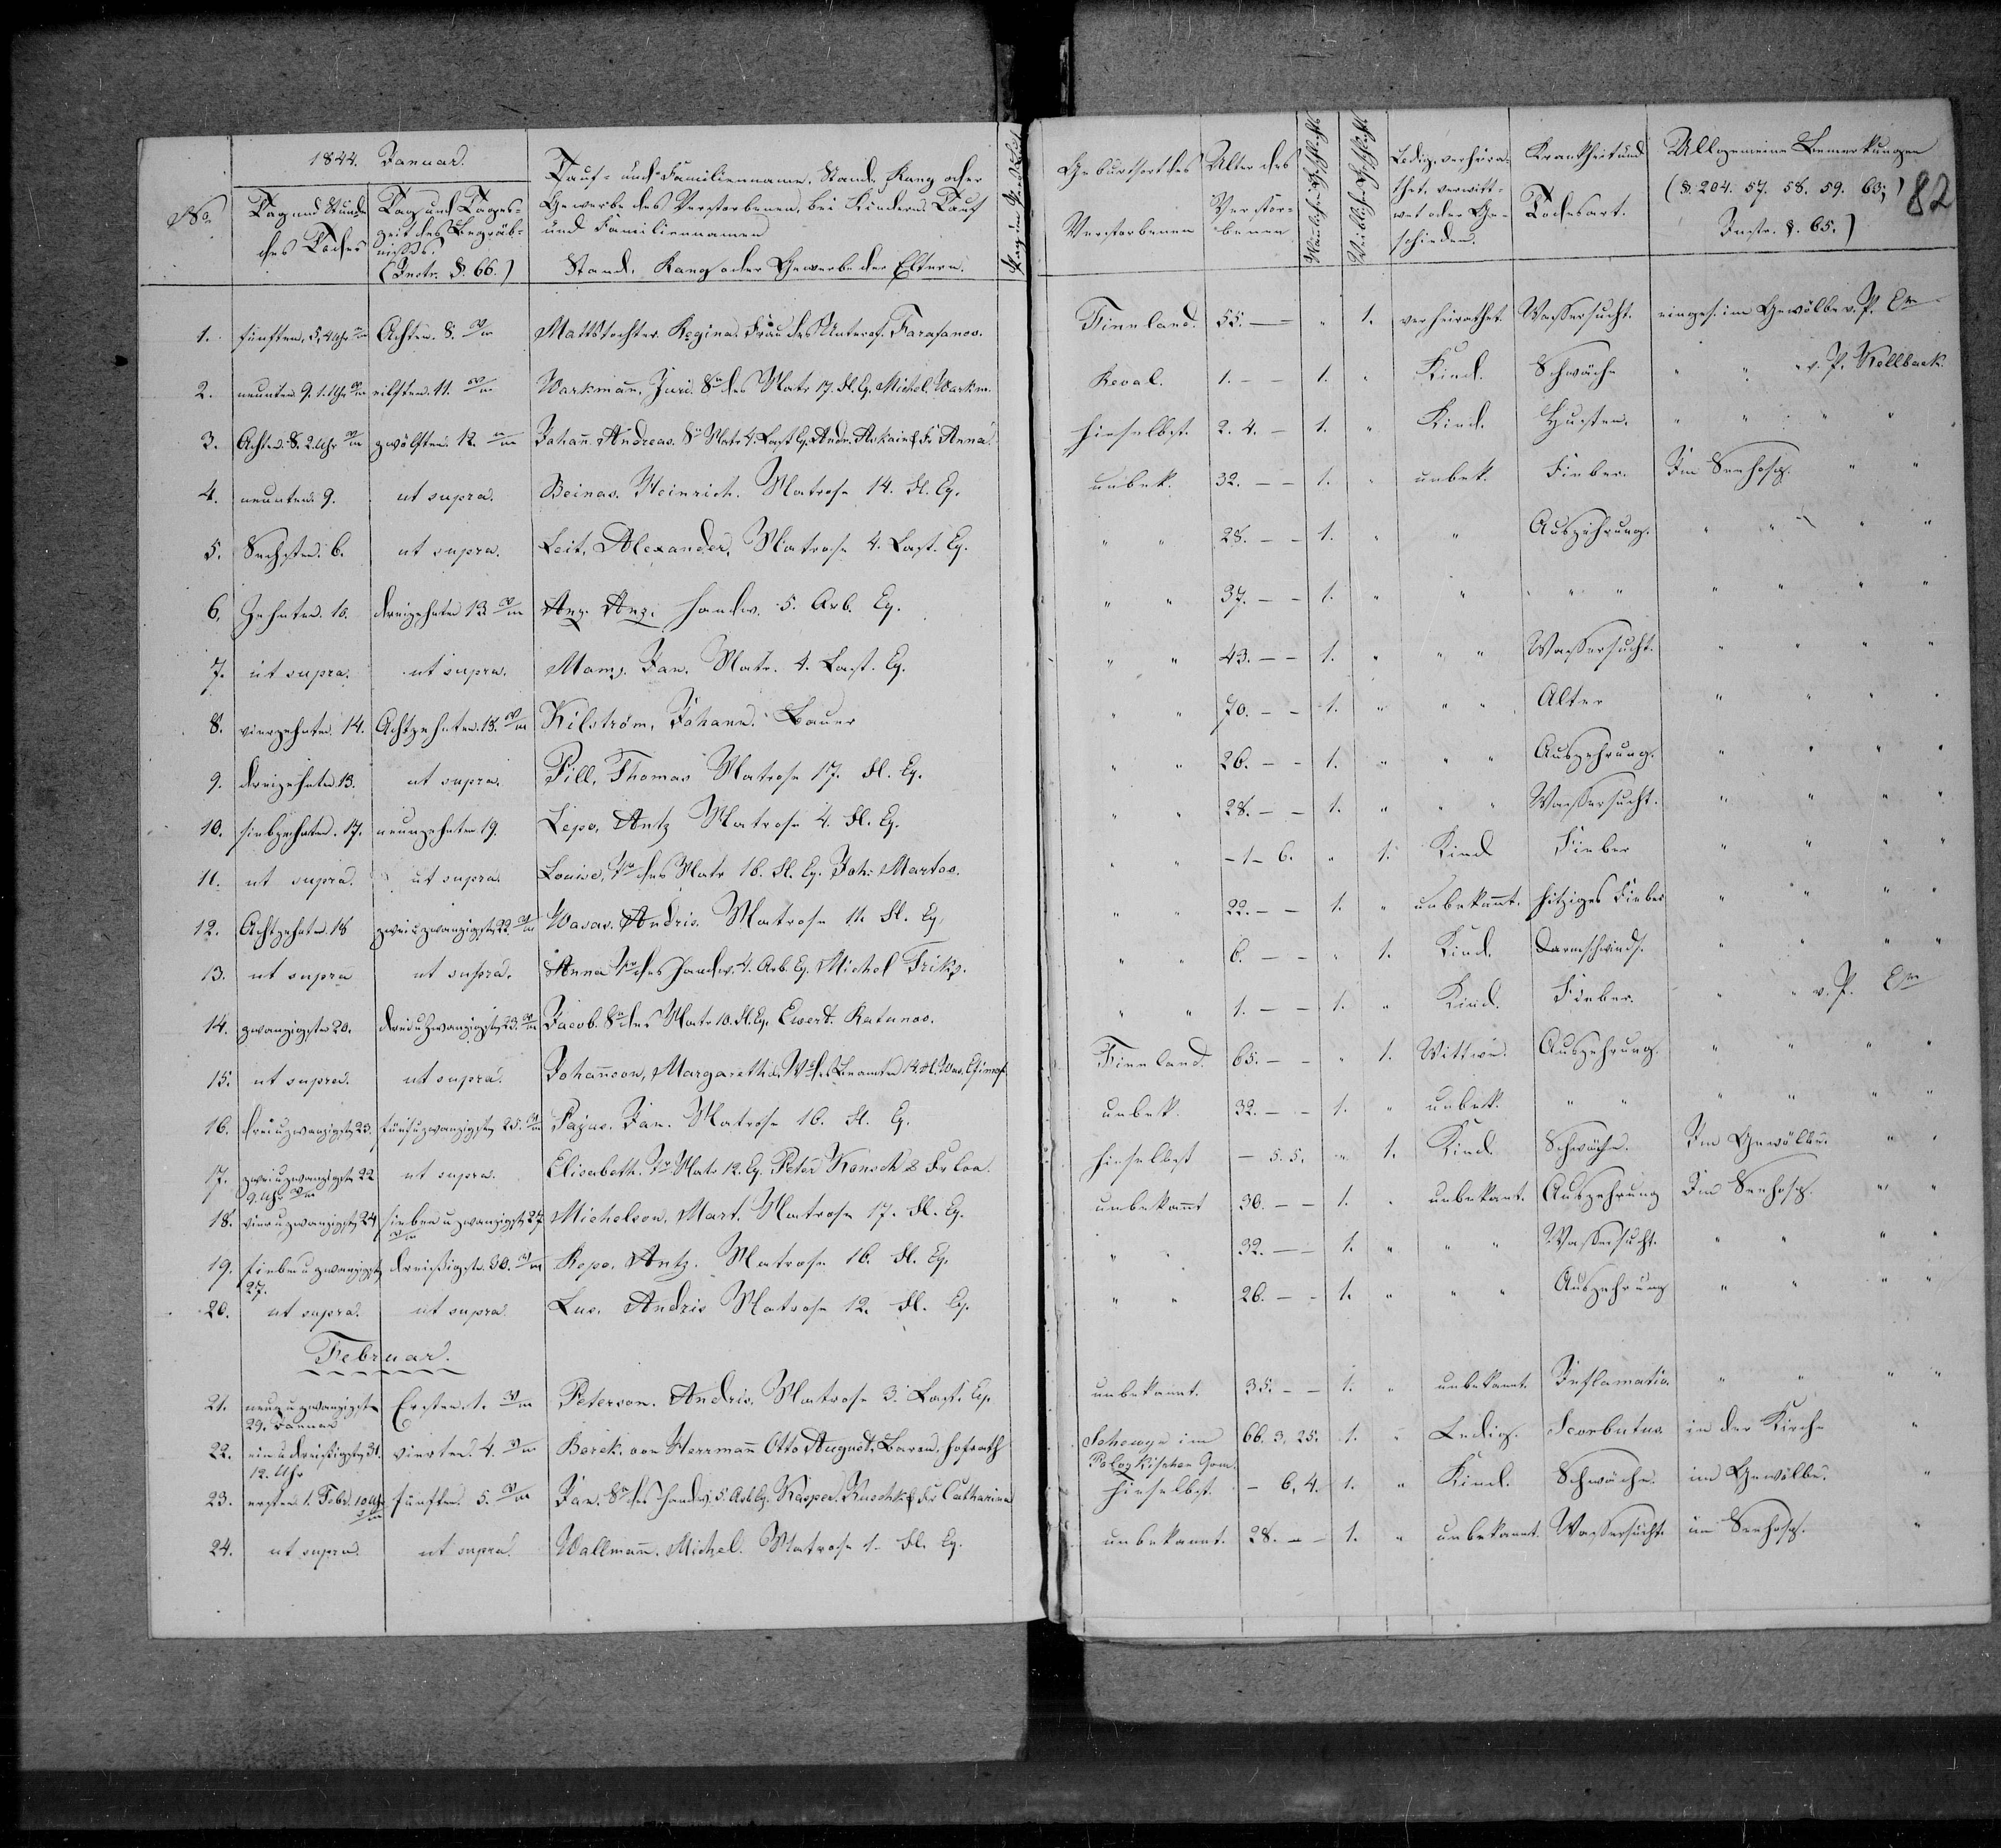 1844. Januar.
No.
Tag und Stunde des Todes
Tag und Tageszeit des Begräbnisses. (Instr. §. 66.)
Tauf- und Familienname. Stand. Rang oder Gewerbe des Verstorbenen, bei Kindern Tauf und Familiennamen
Stand. Rang oder Gewerbe der Eltern.
Geburtsort des Verstorbenen
Alter des Verstorbenen
Männlichen Geschlechts
Weiblichen Geschlechts
Ledig, verheirathet, verwittwet oder Geschieden.
Krankheit und Todesart.
Allgemeine Bemerkungen (§. 204. 57. 58. 59. 63; Instr. §. 65.)
82
1. fünften, 5, 4 Uhr Achten. 8. Mattstochter. Regina. Frau des Unterof. Farafanov. Finnland. 55. — " 1. verheirathet Wassersucht. eingef. im Gewölbe v. P.
2. neunten 9. 1. Uhr eilften. 11. Warkmann, Juri. Sn des Matr 17. Fl. Eq. Michel Warkm. Reval. 1. — — 1. " Kind. Schwäche " " v. P. Kellback.
3. Achten. 8. 2 Uhr zwölften. 12. Johann Andreas. Sn Matr 4. Last Eq. Andr. Fr. Anna. hieselbst. 2. 4. — 1. " Kind. Husten. " " " "
4. neunten. 9. ut supra. Beinas. Heinrich. Matrose 14. Fl. Eq. unbek. 32. — — 1. " unbek. Fieber. Im Seehosp. " "
5. Sechsten. 6. ut supra. Leit, Alexander, Matrose 4. Last. Eq. " " 28. — — 1. " " Auszehrung. " " " "
6. Zehnten. 10. dreizehnten 13 Anz. Anz. Handw. 5. Arb. Eq. " " 37. — — 1. " " " " " " " "
7. ut supra. ut supra. Mamz. Jan. Matr. 4. Last. Eq. " " 43. — — 1. " " " Wassersucht. " " " "
8. vierzehnten. 14. Achtzehnten. 18. Kilström, Johann. Bauer " " 70. — — 1. " " " Alter " " " "
9. dreizehnten 13. ut supra. Pill, Thomas Matrose 17. Fl. Eq. " " 26. — — 1. " " " Auszehrung. " " " "
10. siebzehnten. 17. neunzehnten 19. Lepo, Antz Matrose 4. Fl. Eq. " " 28. — — 1. " " " Wassersucht. " " " "
11. ut supra. ut supra. Louise, Tr des Matr 16. Fl. Eq. Joh. Martos. " " — 1 — 6. " 1. Kind Fieber " " " "
12. Achtzehnten. 18 zweiuzwanzigsten 22. Wasav. Andris. Matrose 11. Fl. Eq. " " 22. — — 1. " unbekannt. hitziges Fieber " " " "
13. ut supra ut supra. Anna Tr des Handw. 4. Arb. Eq. Michel Frikz. " " 6. — — " 1. Kind. Darmschwinds. " " " "
14. zwanzigsten 20. dreiuzwanzigsten 23. Jacob. Sn des Matr 10. Fl. Eq. Ewert. Ratunov. " " 1. — — 1. " Kind. Fieber. " " v. P.
15. ut supra. ut supra. Johannson, Margaretha. Finnland. 65. — — " 1. Wittwe. Auszehrung. " " " "
16. dreiuzwanzigsten 23. fünfuzwanzigsten 25. Pajus. Jan. Matrose 16. Fl. Eq. unbek. 32. — — 1. " unbek. " " " " " "
17. zweiuzwanzigsten 22 9. Uhr ut supra. Elisabeth. Tr Matr 12. Eq. Peter Konsek & Fr Loa. hieselbst — 5. 5. " 1. Kind Schwäche. Im Gewölbe. " "
18. vieruzwanzigsten 24 siebenuzwanzigsten 27 Michelson, Mart. Matrose 17. Fl. Eq. unbekannt 30. — — 1. " unbekant. Auszehrung Im Seehosp. " "
19. siebenuzwanzigsten 27. dreißigsten. 30. Repo, Antz. Matrose 16. Fl. Eq. " " 32. — — 1. " " " Wassersucht. " " " "
20. ut supra. ut supra. Lus. Andris Matrose 12. Fl. Eq. " " 26. — — 1. " " " Auszehrung " " " "
Februar.
21. neunuzwanzigsten 29. Januar Ersten. 1. Peterson. Andris. Matrose 3. Last. Eq. unbekannt. 35. — — 1. " unbekannt. Inflamatio. " " " "
22. einudreißigsten 31. 12. Uhr vierten. 4. Berek. von Herrmann Otto August, Baron, Hofrath im Polozkischen Gouv. 66. 3. 25. 1. " Ledig. Scorbutus. in der Kirche "
23. ersten 1. Febr. 10 Uhr fünften. 5. Jan. Sn des Handw. 5. Arb Eq. Kasper. & Fr Catharina hieselbst. — 6, 4. 1. " Kind. Schwäche. im Gewölbe. "
24. ut supra. ut supra. Wallmann. Michel. Matrose 1. Fl. Eq. unbekannt. 28. — — 1. " unbekannt. Wassersucht im Seehosp. "